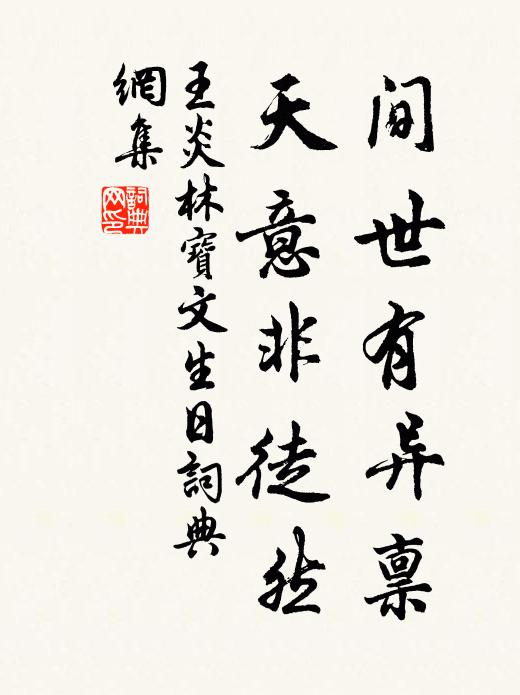 间世有异禀
天意非徒然
王炎林寶文生日詞典
網集
詞典
网印